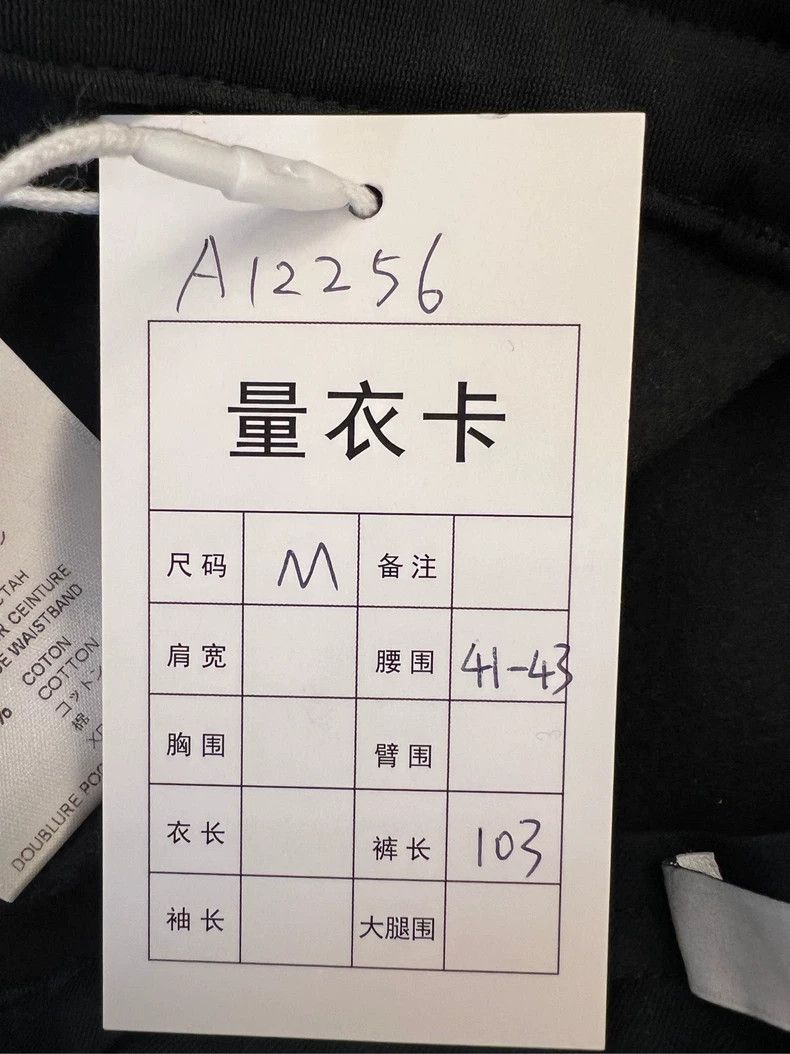 A12256
量衣卡
尺码 M 备注
肩宽 腰围 41-43
胸围 臂围
衣长 裤长 103
袖长 大腿围
CEINTURE
WAISTBAND
COTON
COTTON
コットン
棉
DOUBLURE